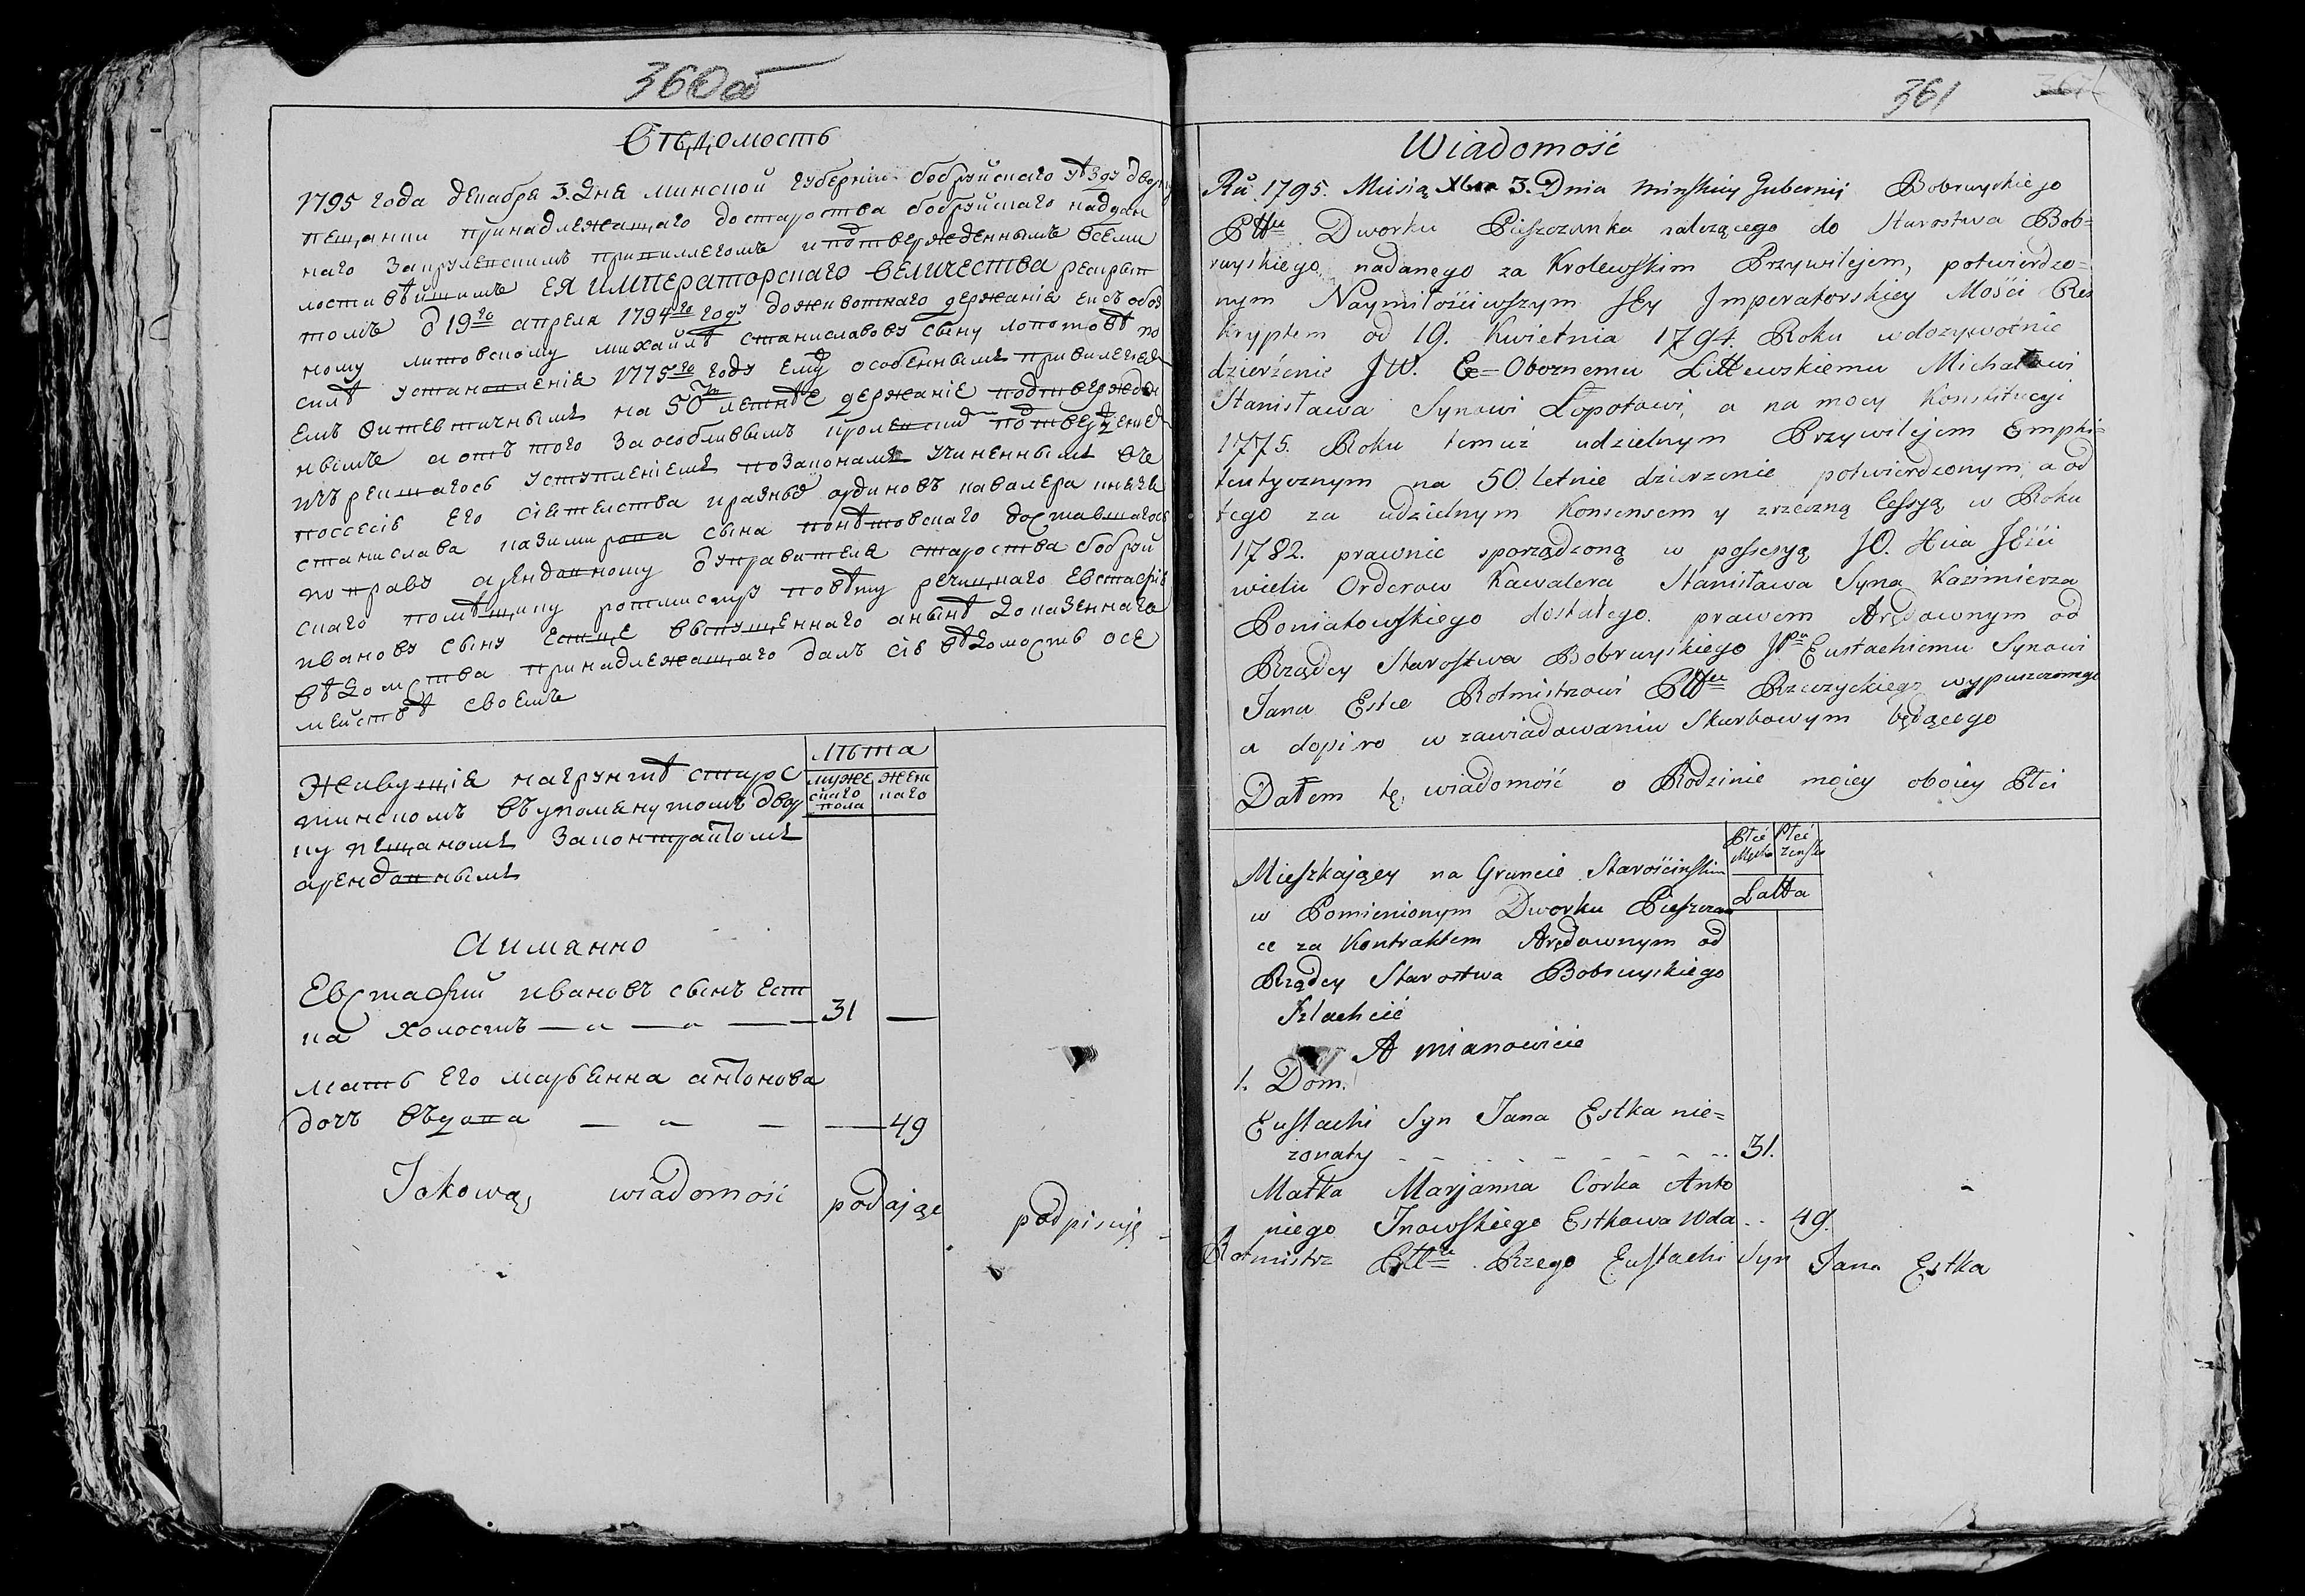 360 об
Вѣдомость
1795 года декабря 3. дня минской губерніи бобруйскаго уѣзду двору
пещанки принадлежащаго до староства бобруйскаго надан
наго за крулевскимъ привиллегомъ и подтвержденнымъ всеми
лостивѣйшимъ ЕЯ ИМПЕРАТОРСКАГО ВЕЛИЧЕСТВА рескрып
томъ д 19го апреля 1794го году доживотнаго держанія
ному литовскому михайлѣ станиславову сыну лопотовѣ по
силѣ установленія 1775го году ему особеннымъ привилегіем
на 50ти летнѣе держаніе подтвержден
нымъ а отъ того за особливымъ
уступленіемъ по законамъ учиненнымъ въ
поссесіѣ его сіятелства разныхъ ординовъ кавалера князя
станислава казимирова сына понятовскаго доставшагось
по праву арендовному д управителя староства бобруй
скаго помѣщику ротмистру повѣту речицкаго евстафію
иванову сыну естце выпущеннаго а нынѣ до казеннаго
вѣдомства принадлежащаго далъ сію вѣдомость о се
мействѣ своемъ
Лѣта
муже
скаго
пола
жен
каго
Живущія на грунтѣ старос
тинскомъ въ упомянутомъ двор
цу пещаномъ за контрактомъ
арендовнымъ
А имянно
Евстафий ивановъ сынъ ест
ка холостъ — „ — „ — — 31 —
мать его марьянна антонова
дочъ въдова — „ — — 49
Jakową wiadomość podając podpisuję
361
Wiadomość
Rů. 1795. Miesią Xbra 3. Dnia Minskiey Gubernij Bobruyskiego
Pttu Dworku Pieszczanka należącego do Starostwa Bob=
ruyskiego, nadanego za Krolewskim Przywilejem, potwierdzo=
nym Naymiłościwszym JEy Jmperatorskiey Mości Res
kryptem od 19. Kwietnia 1794. Roku w dozywotnie
dzierżenie JW. Oboznemu Littewskiemu Michałowi
Stanisława Synowi Łopotowi, a na mocy Konstitucyi
1775. Roku temuż udzielnym Przywilejem Emphi=
teutycznym na 50. letnie dzierzenie potwierdzonym, a od
tego za udzielnym Konsensem y zrzeczną Cessyą w Roku
1782. prawnie sporządzoną w possesyą JO. Xcia JEści
wielu Orderow Kawalera Stanisława Syna Kazimierza
Poniatowskiego dostałego. prawem Arędownym od
Rządcy Starostwa Bobruyskiego JPu Eustachiemu Synowi
Jana Estce Rotmistrzowi Pttu Rzeczyckiego wypuszczonego
a dopiro w zawiadowaniu Skarbowym będącego
Dałem tę wiadomość o Rodzinie mojey oboiey Płci
Płeć
Męska
Płeć
Żeńska
Latta
Mieszkający na Gruncie Starościnskim
w Pomienionym Dworku Pieszczan
ce za Kontraktem Arędownym od
Rządcy Starostwa Bobruyskiego
Szlachcic
A mianowicie
1. Dom.
Eustachi Syn Jana Estka nie=
zonaty 31.
Matka Marjanna Corka Anto
niego Jnowskiego Estkowa Wda .. 49.
Rotmistrz Pttu Rzego Eustachi Syn Jana Estka